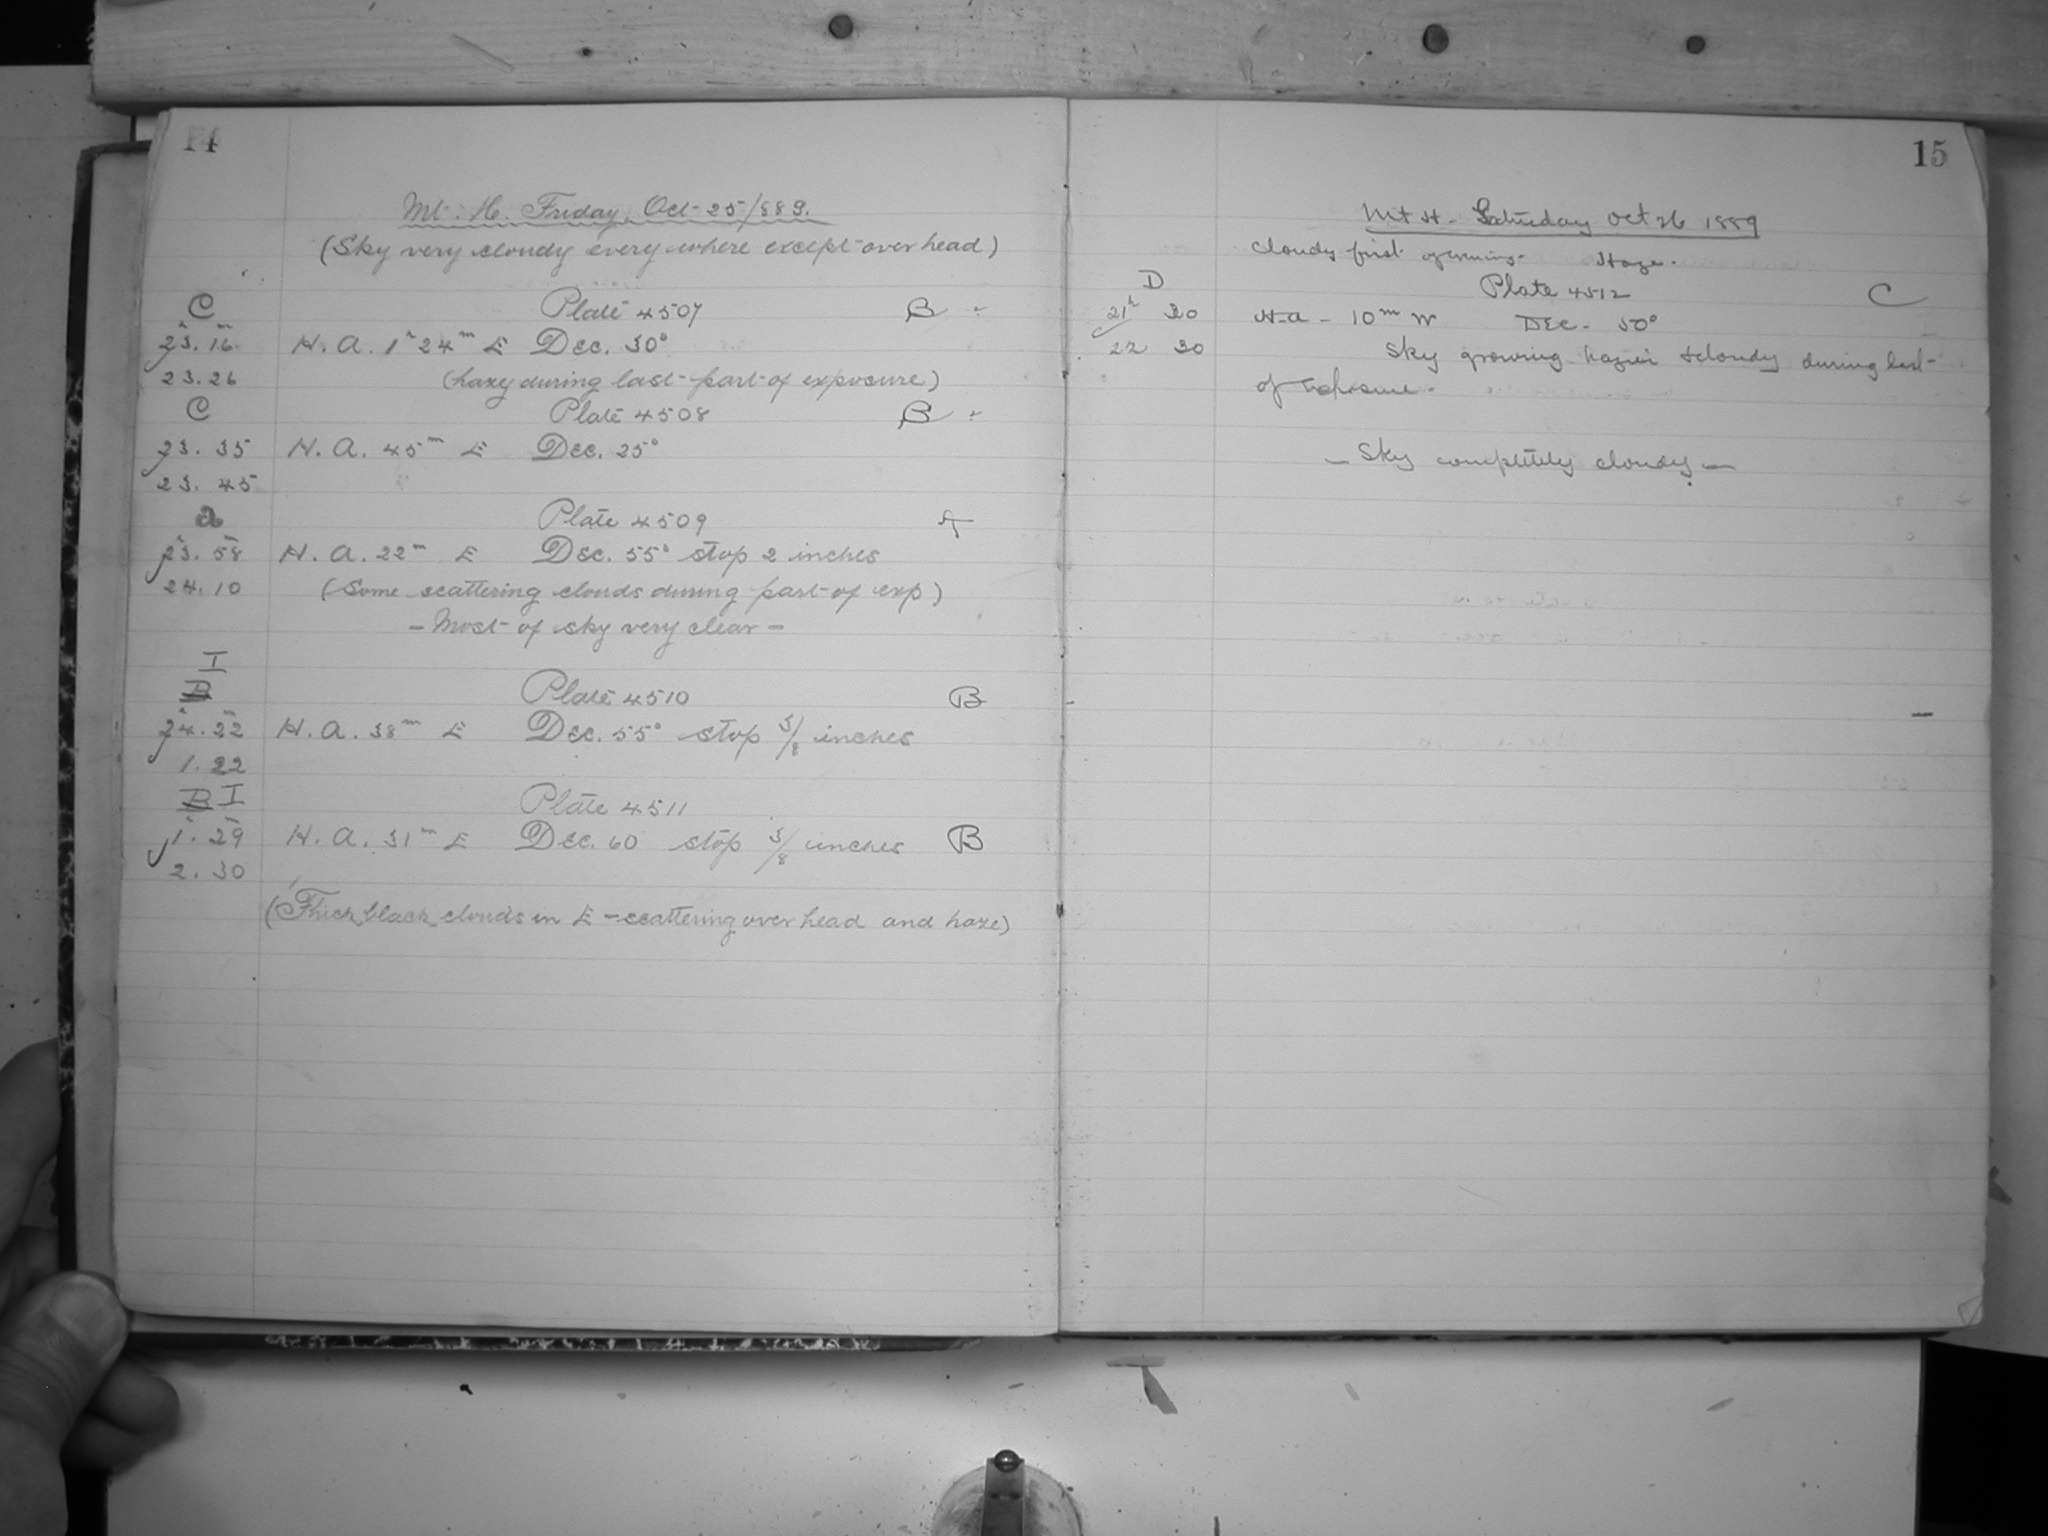 14
Mt. H. Friday, Oct-25/889.
(Sky very cloudy every where except over head)
C Plate 4507 B
23h.16m H. A. 1h 24m E Dec. 30°
23.26 (hazy during last part of exposure)
C Plate 4508 B
23. 35 H. A. 45m E Dec. 25°
23. 45
a Plate 4509
23h. 58m H. A. 22m E Dec. 55° stop 2 inches
24. 10 (Some scattering clouds during part of exp)
- Most of sky very clear -
I
B Plate 4510 B
24h. 22m H. A. 38m E Dec. 55° stop 3/8 inches
1. 22
B I Plate 4511
1h. 29m H. A. 31m E Dec. 60 stop 3/8 inches B
2. 30
(Thick black clouds in E - scattering over head and haze)
15
Mt H - Saturday Oct 26 1889
Cloudy first opening - Haze -
D Plate 4512 C
21h 30 H-a - 10m W Dec - 50°
22 30 Sky growing hazier & cloudy during last -
of
- Sky completely cloudy -